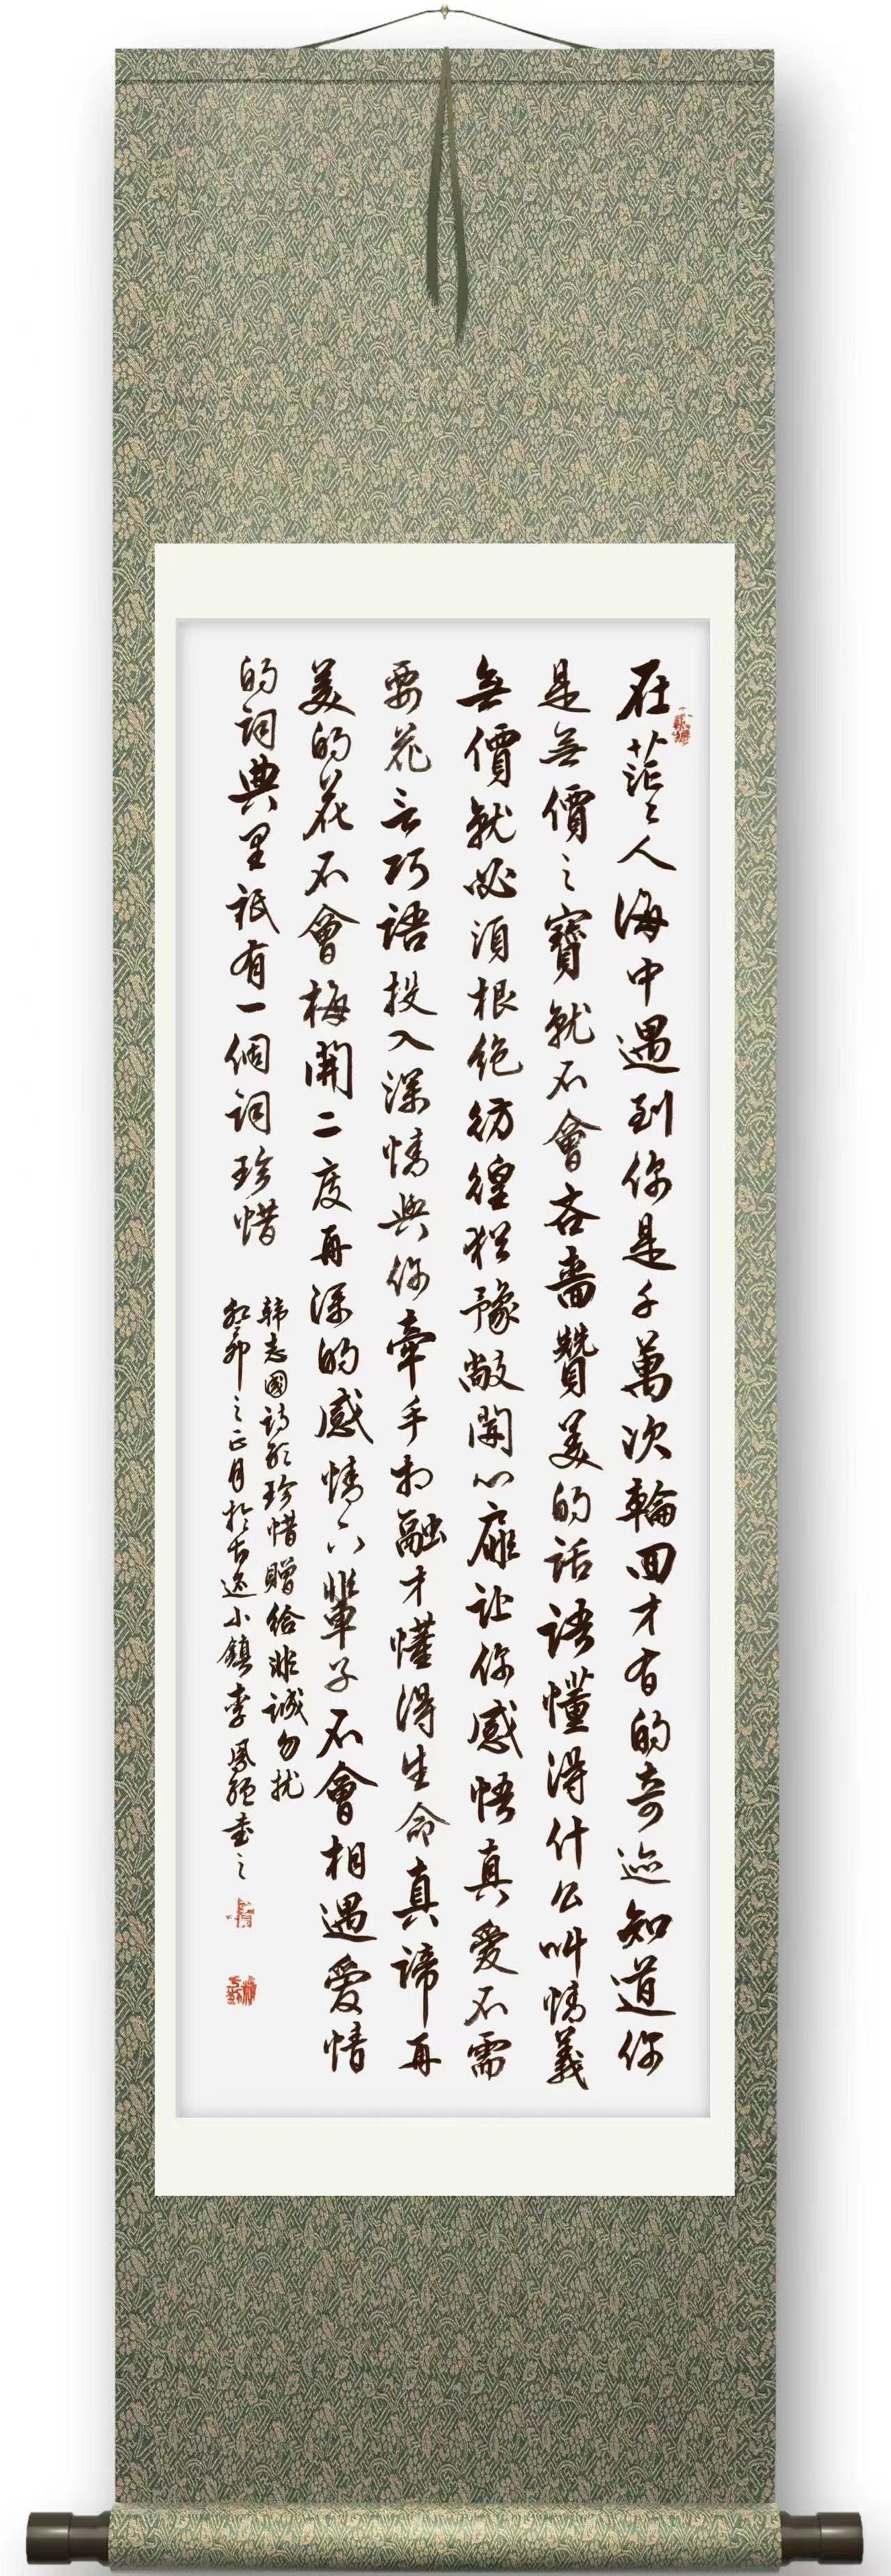 在茫々人海中遇到你是千萬次輪回才有的奇迹知道你
是無價之寶就不會吝嗇贊美的話語懂得什么叫情義
無價就必須根绝彷徨猶豫敞開心扉让你感悟真愛不需
要花言巧語投入深情與你牽手相融才懂得生命真諦再
美的花不會梅開二度再深的感情下輩子不會相遇愛情
的词典里祇有一個词珍惜
韩志國诗歌珍惜贈给非誠勿扰
癸卯之正月於古逸小鎮李鳳強書之